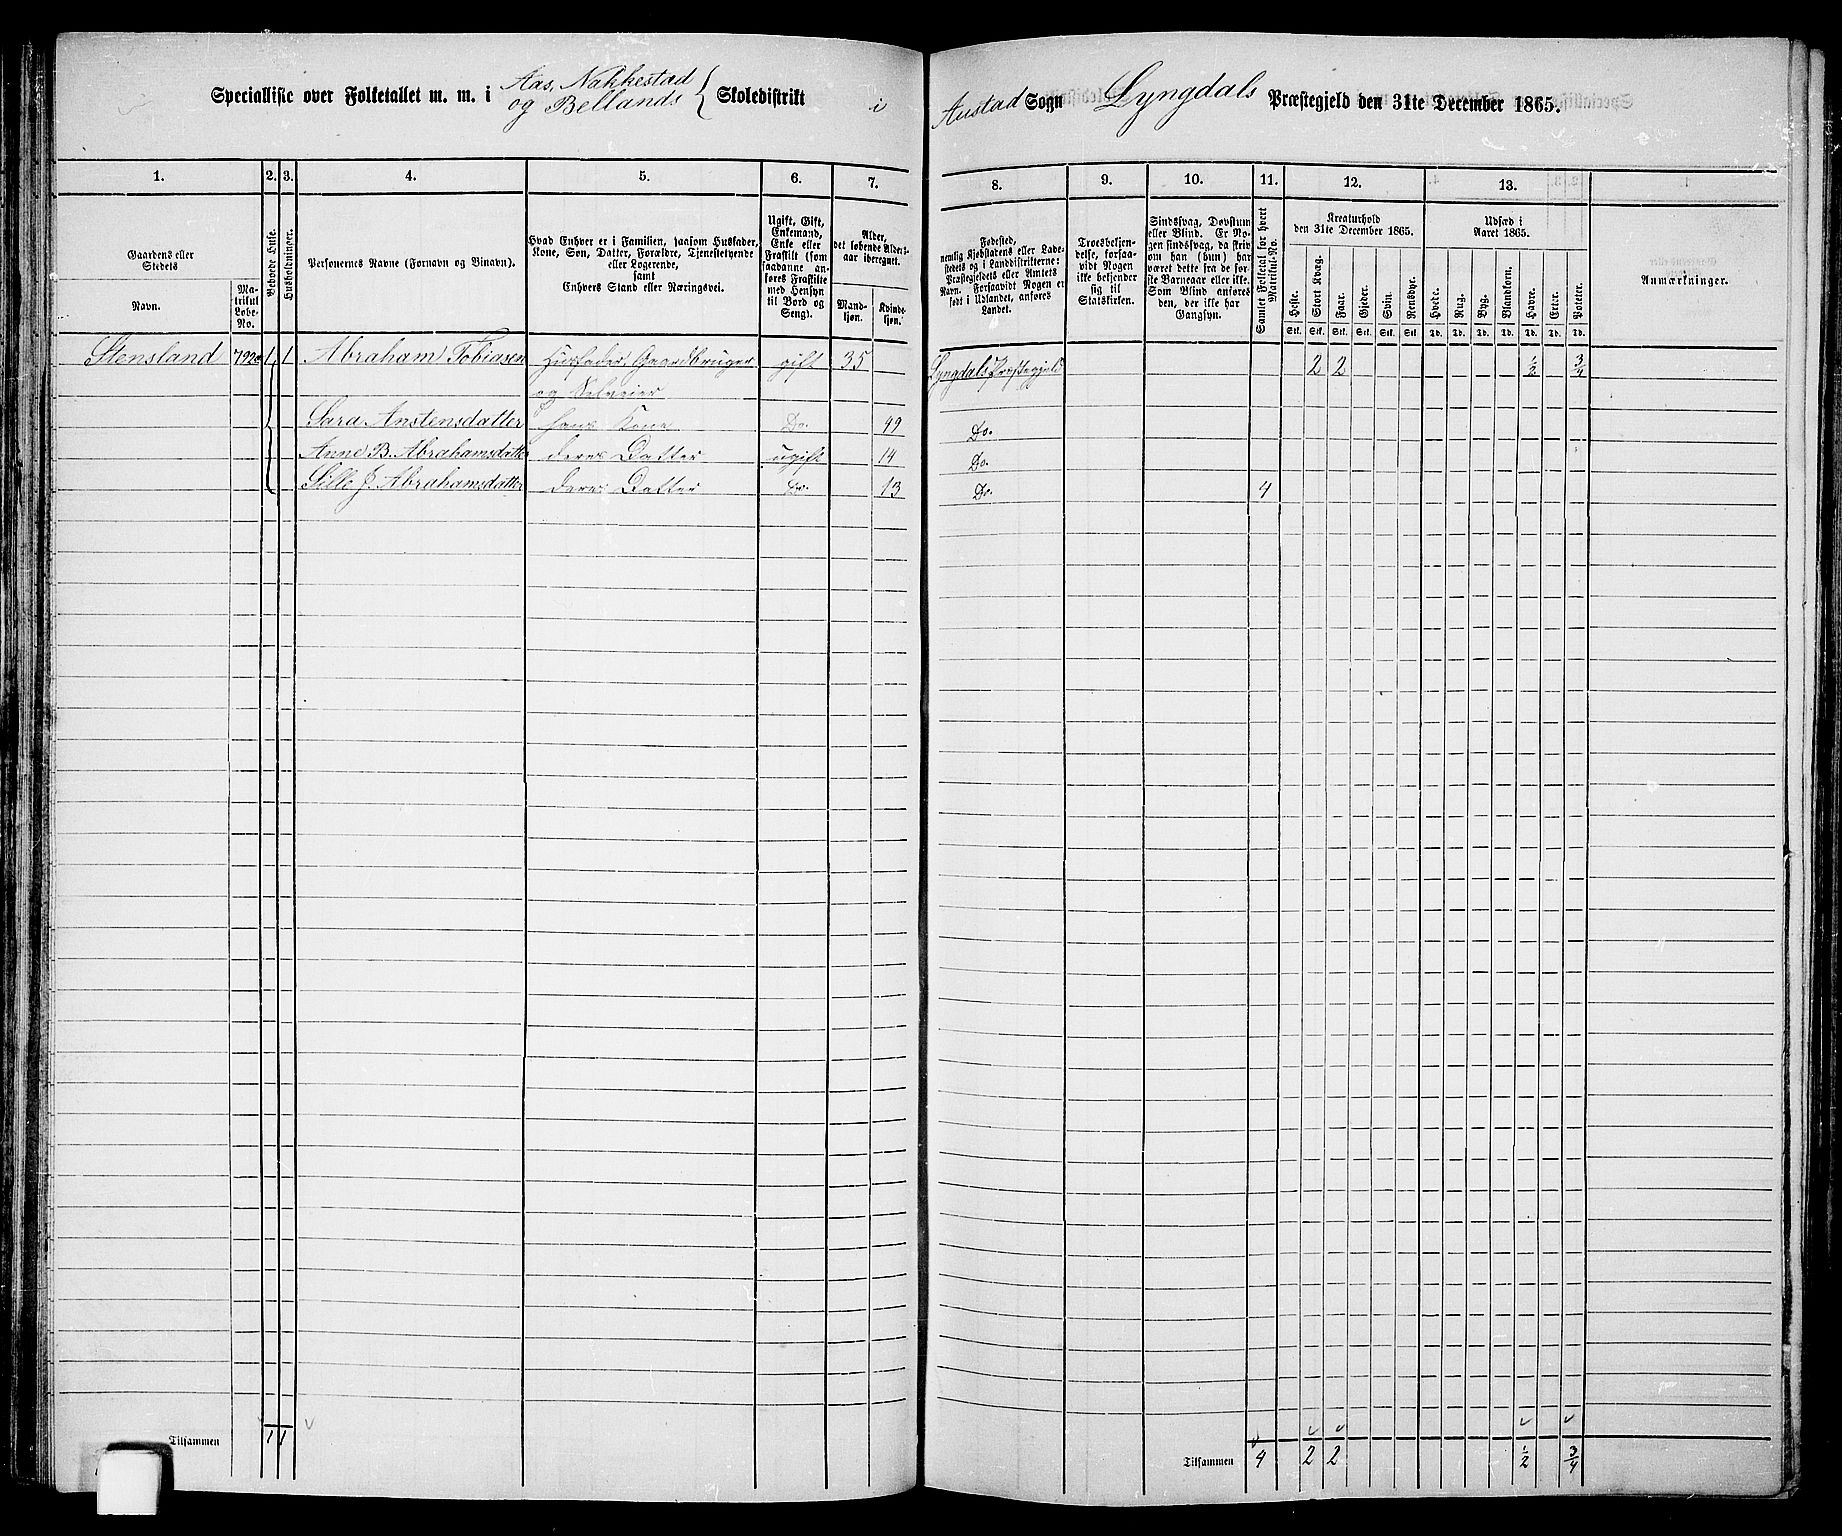 Specialliste over Folketallet m. m. i Aas, Nakkestad og Bellands Skoledistrikt i Austad Sogn Lyngdals Præstegjeld den 31te December 1865.
1. 2. 3. 4. 5. 6. 7. 8. 9. 10. 11. 12. 13.
Gaardens eller Stedets
Navn.
Matrikul Løbe-No.
Beboede Huse.
Husholdninger.
Personernes Navne (Fornavn og Tilnavn).
Hvad Enhver er i Familien, saasom Husfader, Kone, Søn, Datter, Forældre, Tjenestetyende eller Logerende, samt Enhvers Stand eller Næringsvei.
Ugift, Gift, Enkemand, Enke eller Fraskilt (som saadanne anføres Fraskilte med Hensyn til Bord og Seng).
Alder, det løbende Alders-aar iberegnet.
Mand-kjøn.
Kvinde-kjøn.
Fødested, nemlig Kjøbstadens eller Ladestedets og i Landdistrikterne: Præstegjeldets eller Amtets Navn. Forsaavidt Nogen er født i Udlandet, anføres Landet.
Troesbekjendelse, forsaavidt Nogen ikke bekjender sig til Statskirken.
Sindssvag, Døvstum eller Blind. Er Nogen sindssvag, da skrives om han (hun) har været dette fra de første Barneaar eller ikke. Som Blind anføres den, der ikke har Gangsyn.
Samlet Folketal for hvert Matrikul-No.
Kreaturhold den 31te December 1865.
Heste. Stort Kvæg. Faar. Gjeder. Svin. Rensdyr.
Stk. Stk. Stk. Stk. Stk. Stk.
Udsæd i Aaret 1865.
Hvede. Rug. Byg. Blandkorn. Havre. Erter. Poteter.
Td. Td. Td. Td. Td. Td. Td.
Anmærkninger.
Stensland 192 1 1 Abraham Tobiasen Husfader, Gaardbruger gift 35 Lyngdals Præstegjeld 2 2 1/2 3/4
og Selveier
Sara Anstensdatter hans Kone Do. 49 Do.
Anne B. Abrahamsdatter deres Datter ugift 14 Do.
Sille J. Abrahamsdatter deres Datter Do. 13 Do. 4
Tilsammen 1 1 Tilsammen 4 2 2 1/2 3/4